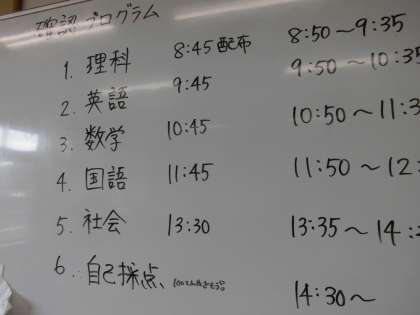 確認プログラム
1. 理科 8:45 配布 8:50～9:35
2. 英語 9:45 9:50～10:35
3. 数学 10:45 10:50～11:3
4. 国語 11:45 11:50～12:
5. 社会 13:30 13:35～14:
6. 自己採点、 14:30～